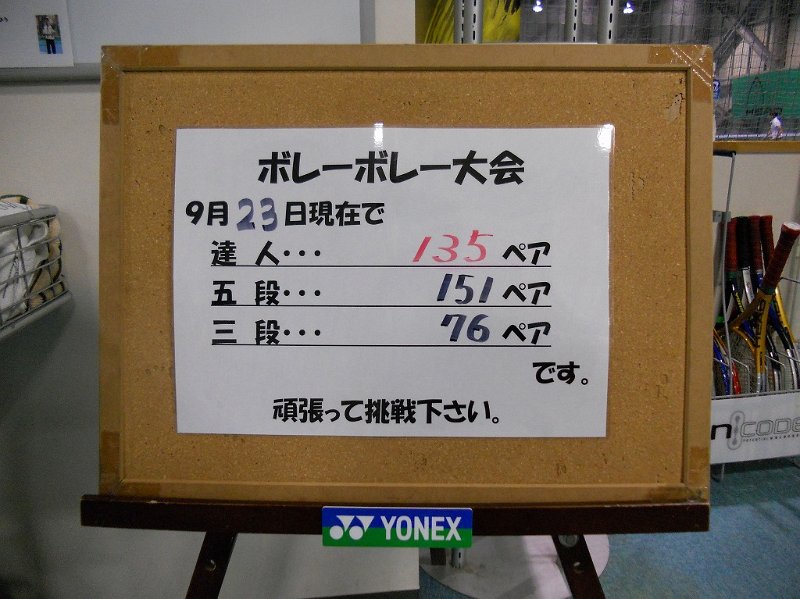 ボレーボレー大会
9月23日現在で
達人・・・ 135ペア
五段・・・ 151ペア
三段・・・ 76ペア
です。
頑張って挑戦下さい。
YONEX
nCODE
HEAD